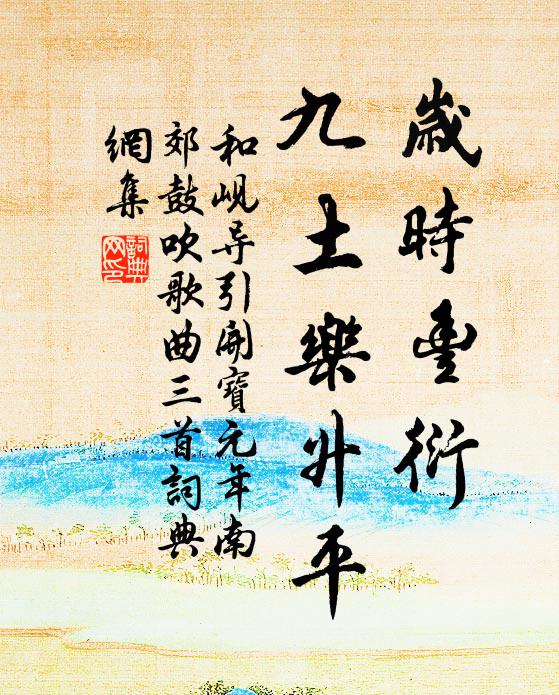 歲時豐衍
九土樂升平
和岘导引開寶元年南
郊鼓吹歌曲三首詞典
網集
詞典
网印